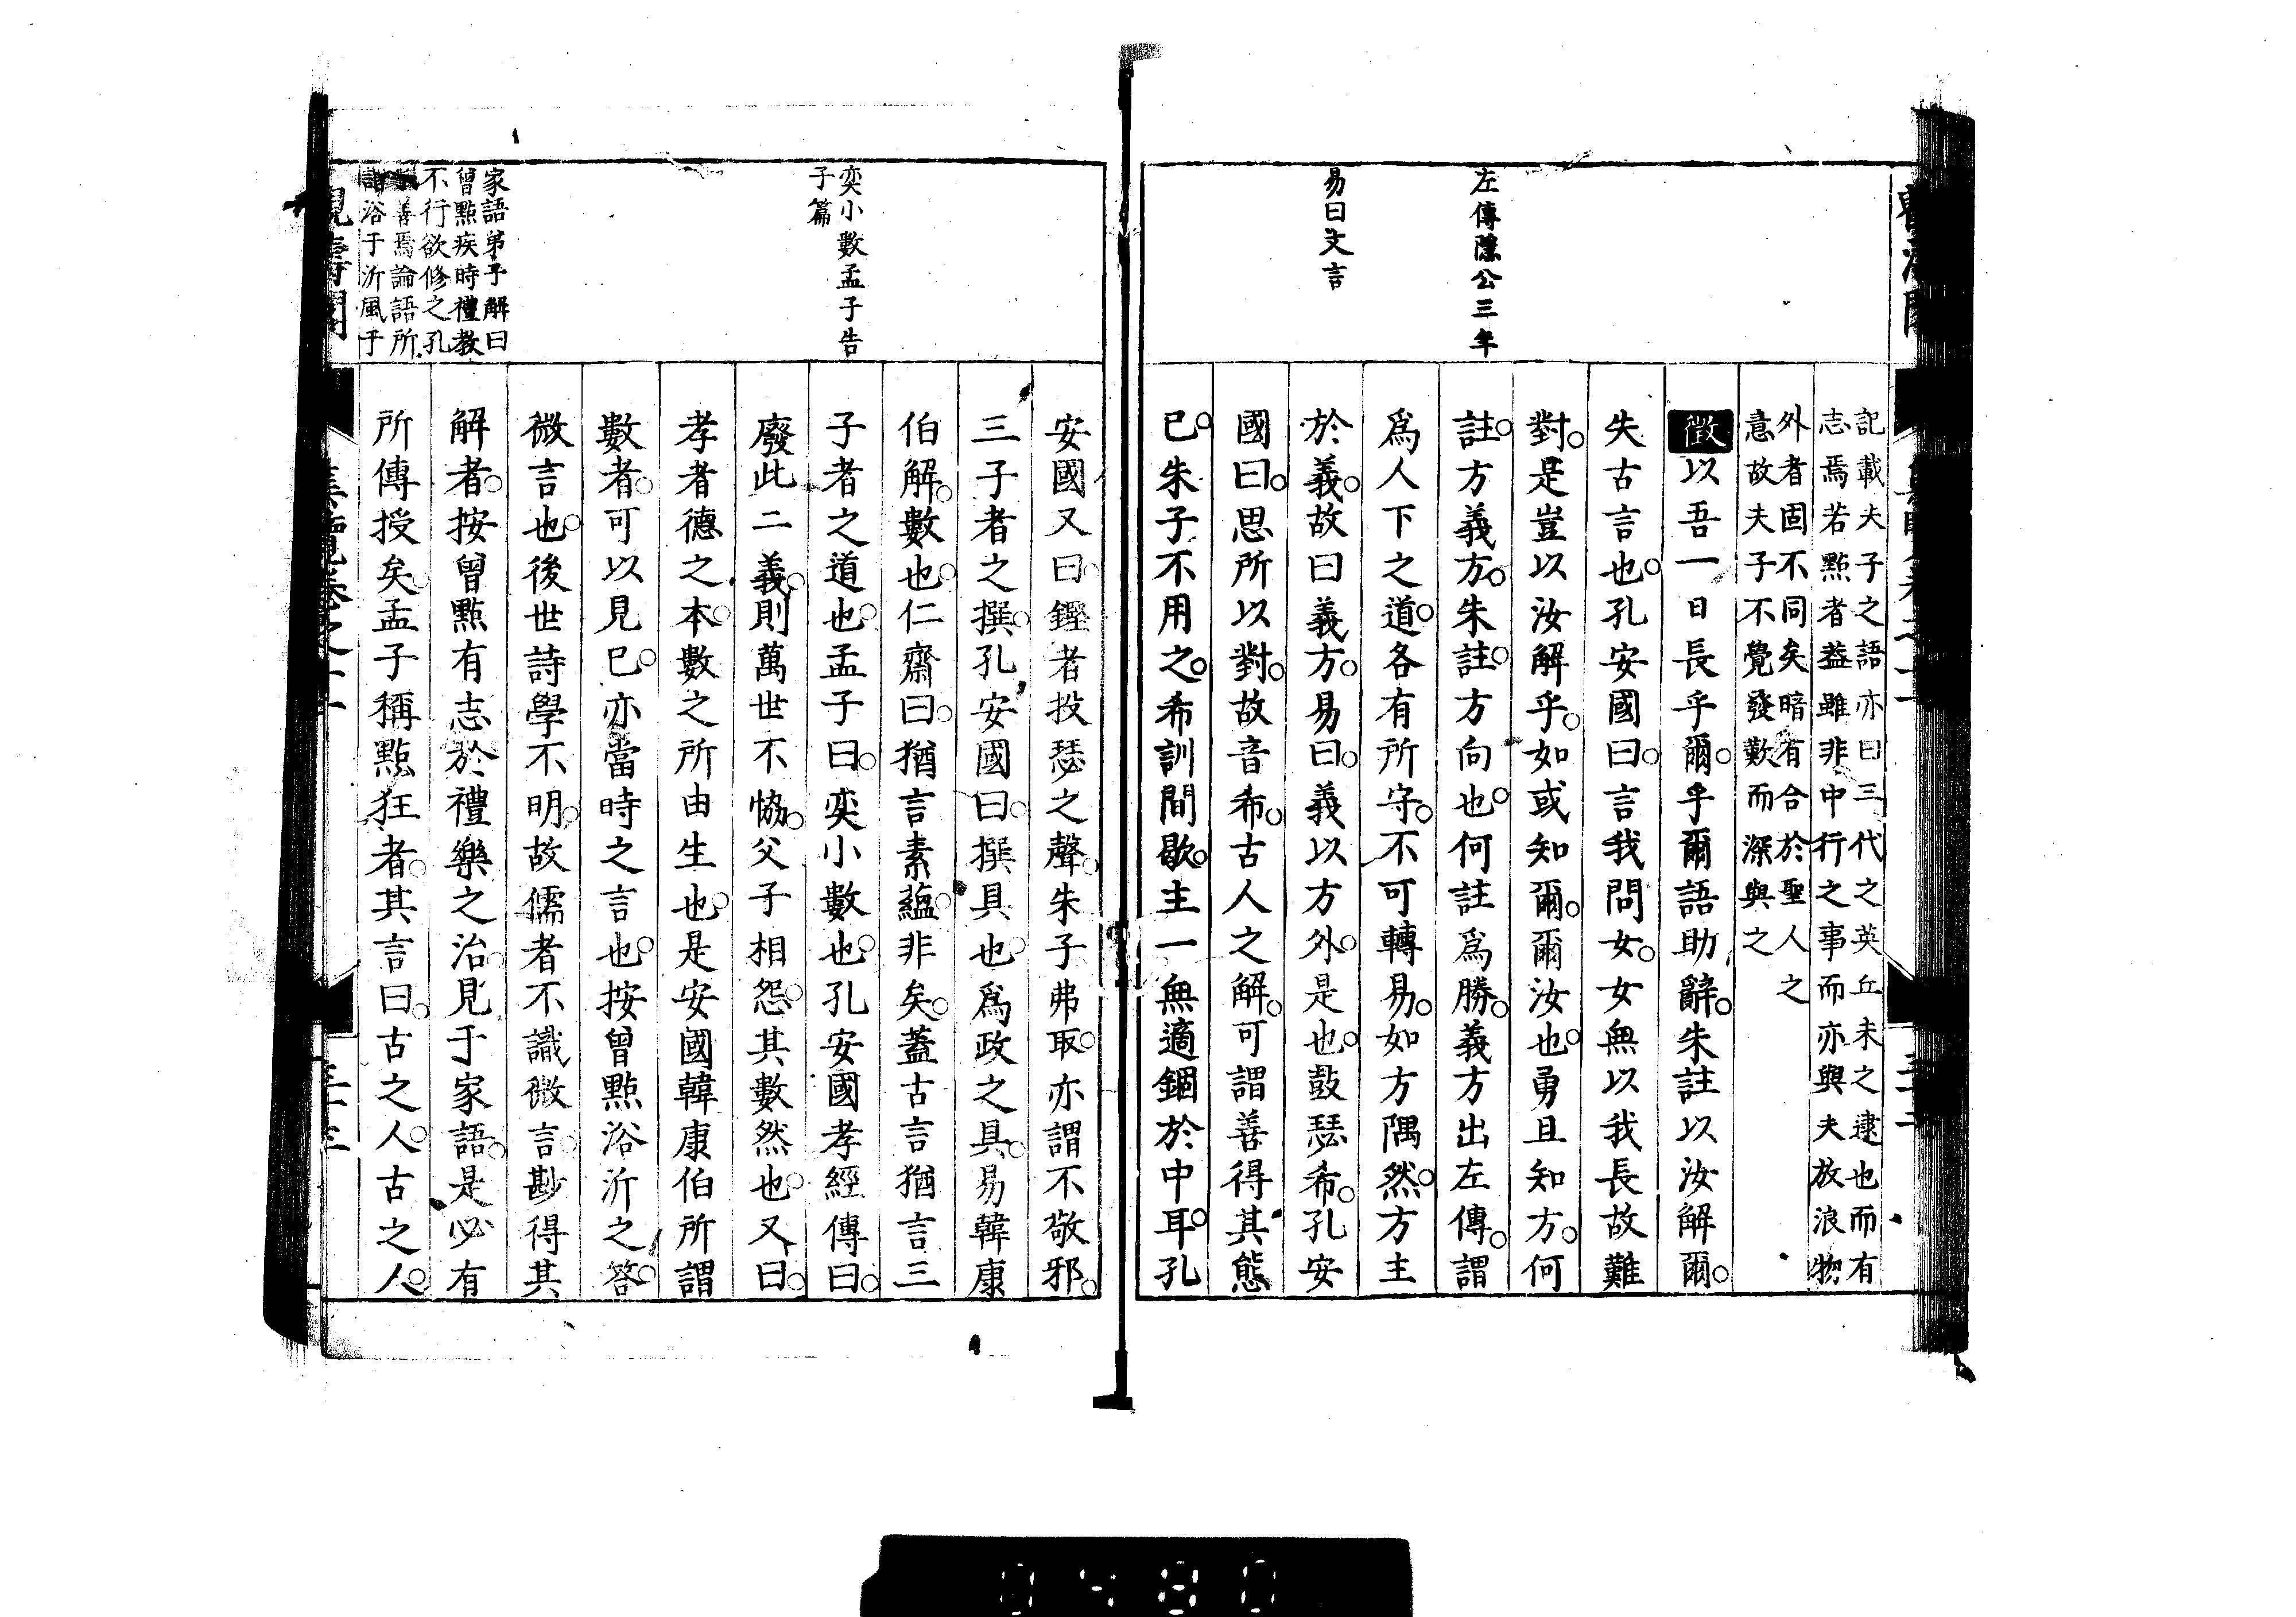 左傳隱公三年
易曰文言
記載夫子之語亦曰三代之英丘未之逮也而有
志焉若點者葢雖非中行之事而亦與夫放浪物
外者固不同矣暗有合於聖人之
意故夫子不覺發歎而深與之
徵以吾一日長乎爾乎爾語助辭朱註以汝解爾
失古言也孔安國曰言我問女女無以我長故難
對是豈以汝解乎如或知爾爾汝也勇且知方何
註方義方朱註方向也何註爲勝義方出左傳謂
爲人下之道各有所守不可轉易如方隅然方主
於義故曰義方易曰義以方外是也鼓瑟希孔安
國曰思所以對故音希古人之解可謂善得其態
已朱子不用之希訓間歇主一無適錮於中耳孔
奕小數孟子告
子篇
家語弟子解曰
曾點疾時禮教
不行欲修之孔
善焉論語所
浴于沂風于
安國又曰鏗者投瑟之聲朱子弗取亦謂不敬邪
三子者之撰孔安國曰撰具也爲政之具易韓康
伯解數也仁齋曰猶言素蘊非矣蓋古言猶言三
子者之道也孟子曰奕小數也孔安國孝經傳曰
廢此二義則萬世不恊父子相怨其數然也又曰
孝者德之本數之所由生也是安國韓康伯所謂
數者可以見已亦當時之言也按曾點浴沂之答
微言也後世詩學不明故儒者不識微言尠得其
解者按曾點有志於禮樂之治見于家語是必有
所傳授矣孟子稱點狂者其言曰古之人古之人